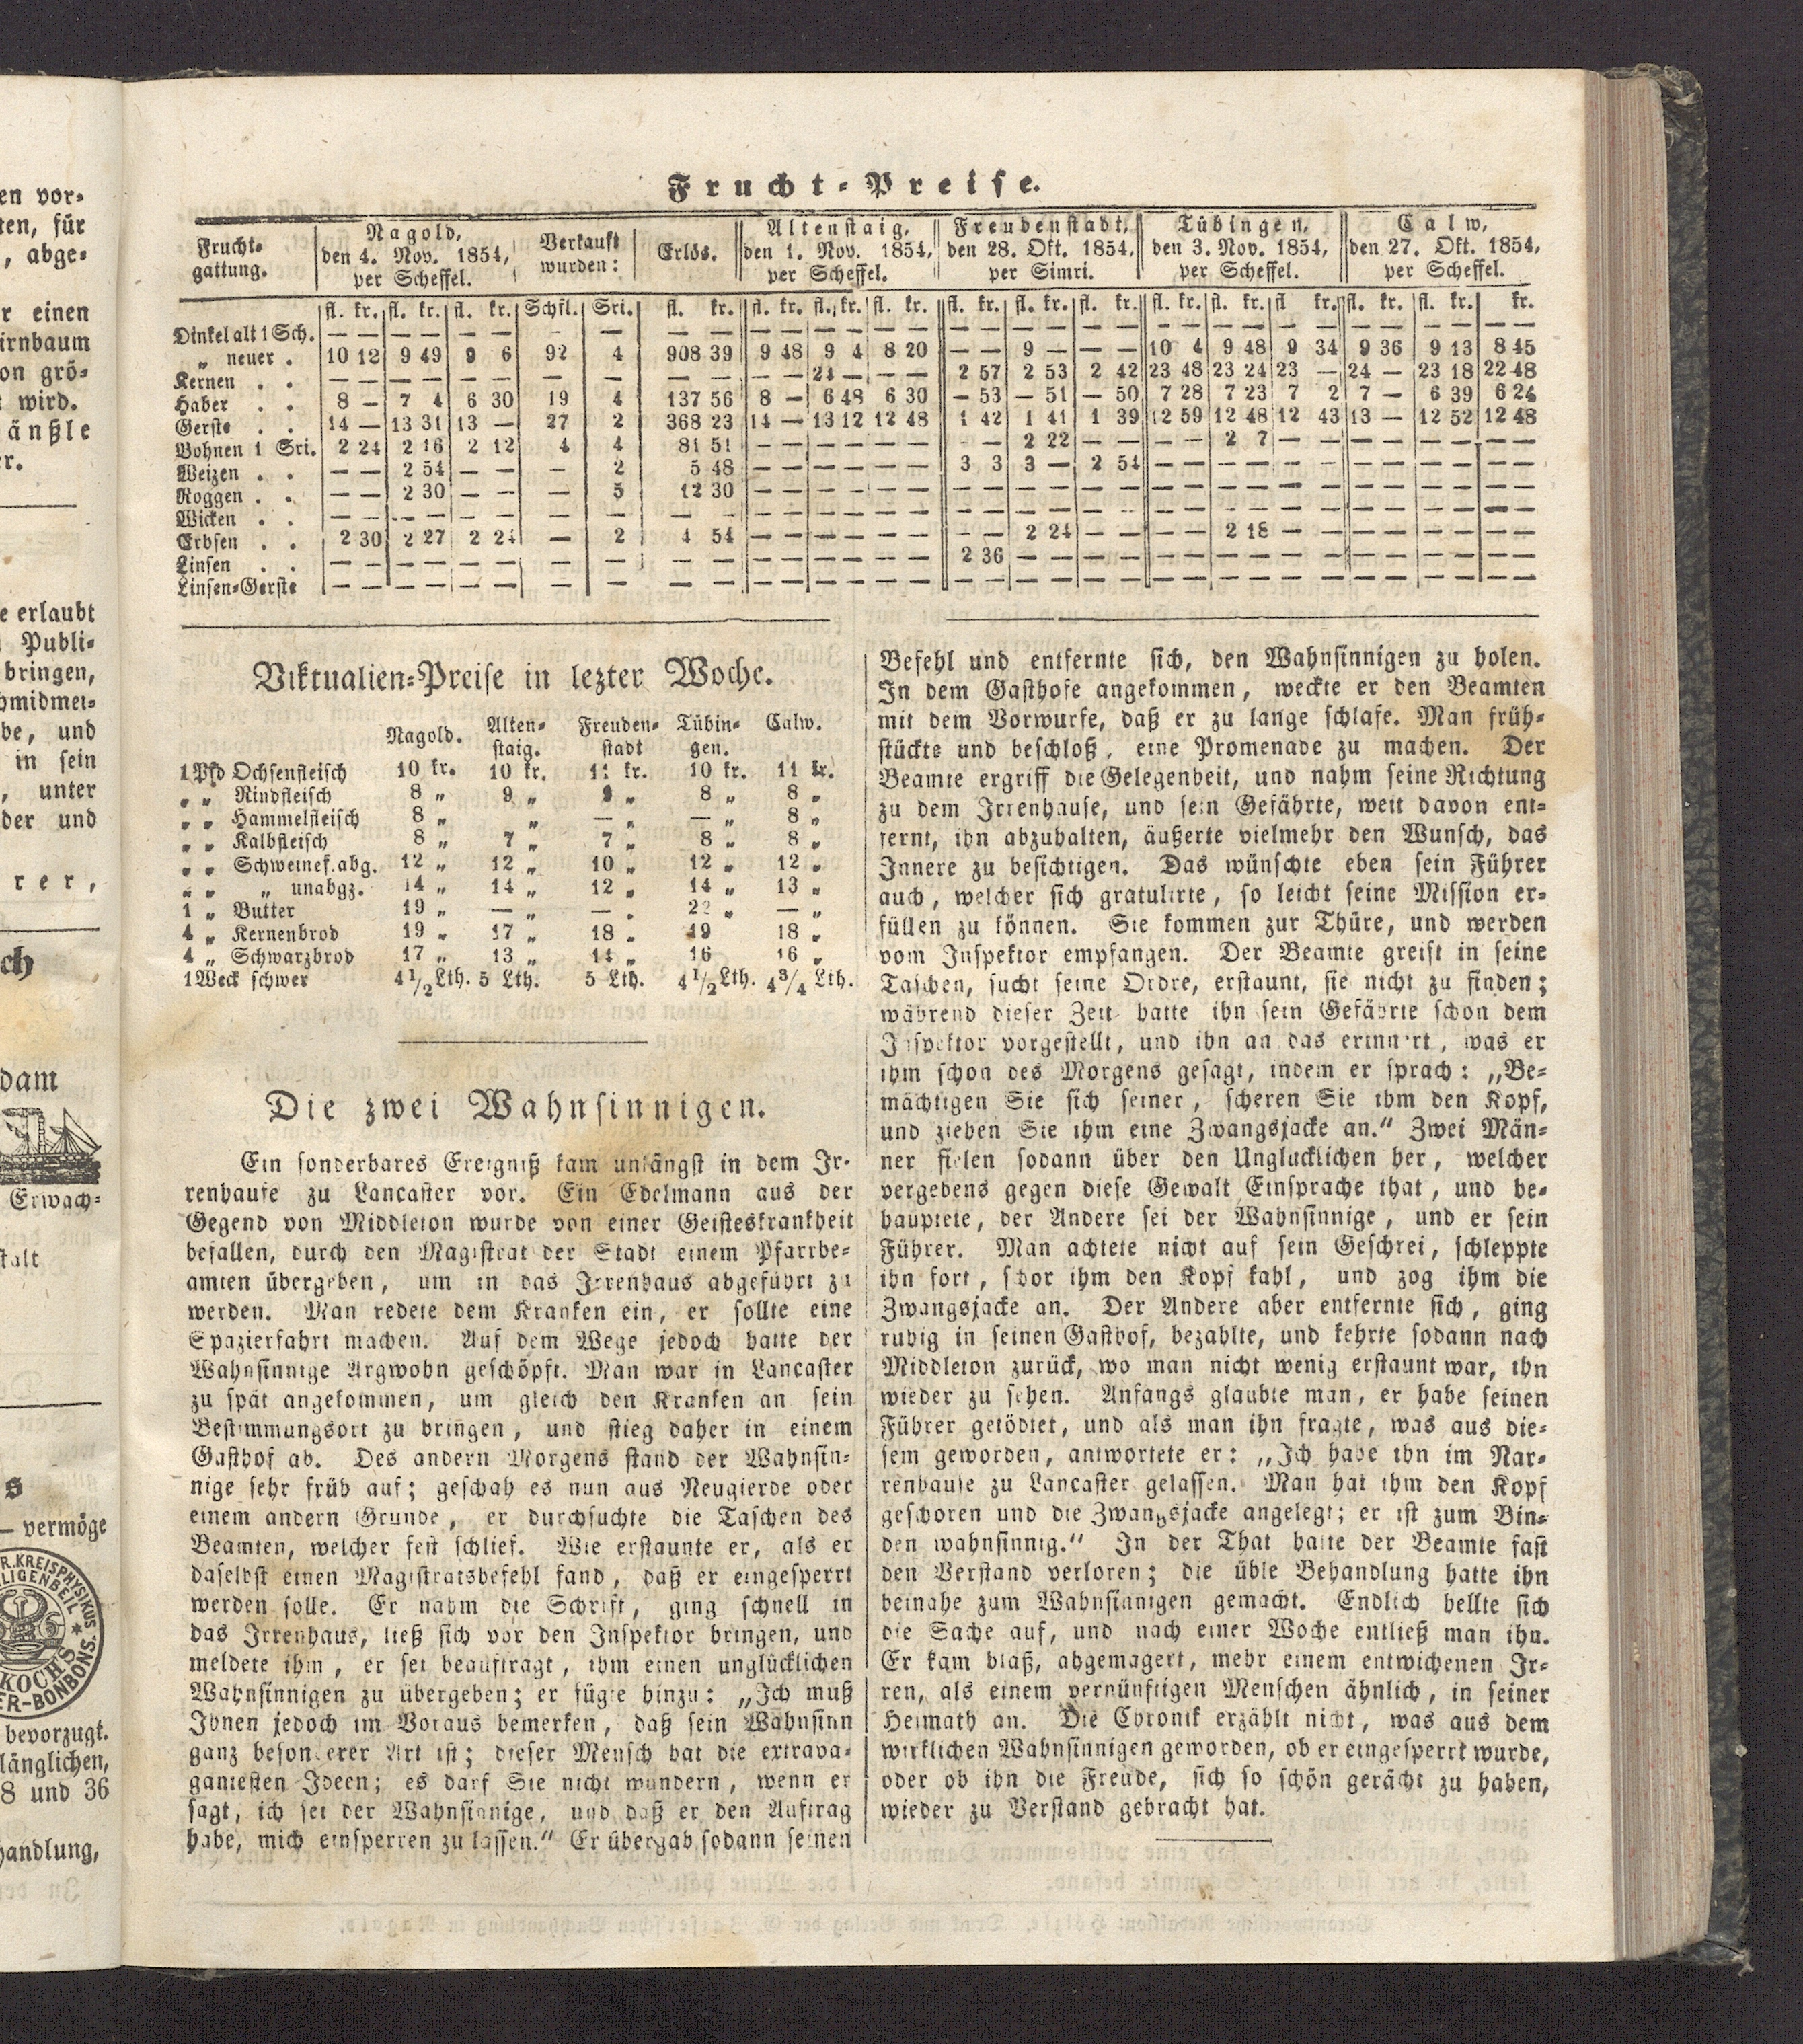 en vor-
ten, für
, abge-
r einen
irnbaum
on grö-
t wird.
änßle
er.
e erlaubt
Publi-
bringen,
hmidmei-
be, und
in sein
, unter
der und
rer,
ch
dam
Erwach-
talt
s
— vermöge
R. KREISPHYSIKUS
KOCH'S
ER-BONBONS.
bevorzugt.
länglichen,
8 und 36
handlung,
Frucht-Preise.
Frucht-gattung. | Nagold, den 4. Nov. 1854, per Scheffel. | Verkauft wurden: | Erlös. | Altenstaig, den 1. Nov. 1854, per Scheffel. | Freudenstadt, den 28. Okt. 1854, per Simri. | Tübingen, den 3. Nov. 1854, per Scheffel. | Calw, den 27. Okt. 1854, per Scheffel.
fl. kr. fl. kr. fl. kr. Schfl. Sri. fl. kr. fl. kr. fl. kr. fl. kr. fl. kr. fl. kr. fl. kr. fl. kr. fl. kr. fl kr. fl. kr. fl. kr. kr.
Dinkel alt 1 Sch. — — — — — — — — — — — — — — — — — — — — — — — — — — — —
„ neuer . 10 12 9 49 9 6 92 4 908 39 9 48 9 4 8 20 — — 9 — — — 10 4 9 48 9 34 9 36 9 13 8 45
Kernen . . — — — — — — — — — — — — 24 — — — 2 57 2 53 2 42 23 48 23 24 23 — 24 — 23 18 22 48
Haber . . 8 — 7 4 6 30 19 4 137 56 8 — 6 48 6 30 — 53 — 51 — 50 7 28 7 23 7 2 7 — 6 39 6 24
Gerste . . 14 — 13 31 13 — 27 2 368 23 14 — 13 12 12 48 1 42 1 41 1 39 12 59 12 48 12 43 13 — 12 52 12 48
Bohnen 1 Sri. 2 24 2 16 2 12 4 4 81 51 — — — — — — — — 2 22 — — — — 2 7 — — — — — — — —
Weizen . . — — 2 54 — — — 2 5 48 — — — — — — 3 3 3 — 2 54 — — — — — — — — — — — —
Roggen . . — — 2 30 — — — 5 12 30 — — — — — — — — — — — — — — — — — — — — — — — —
Wicken . . — — — — — — — — — — — — — — — — — — — — — — — — — — — — — — — — — —
Erbsen . . 2 30 2 27 2 24 — 2 4 54 — — — — — — — — 2 24 — — — — 2 18 — — — — — — — —
Linsen . . — — — — — — — — — — — — — — — — 2 36 — — — — — — — — — — — — — — — —
Linsen-Gerste — — — — — — — — — — — — — — — — — — — — — — — — — — — — — — — — — —
Viktualien-Preise in lezter Woche.
Nagold. Alten-staig. Freuden-stadt Tübin-gen. Calw.
1 Pfd Ochsenfleisch 10 kr. 10 kr. 11 kr. 10 kr. 11 kr.
„ „ Rindfleisch 8 „ 9 „ 9 „ 8 „ 8 „
„ „ Hammelfleisch 8 „ „ — „ — „ 8 „
„ „ Kalbfleisch 8 „ 7 „ 7 „ 8 „ 8 „
„ „ Schweinef. abg. 12 „ 12 „ 10 „ 12 „ 12 „
„ „ „ unabgz. 14 „ 14 „ 12 „ 14 „ 13 „
1 „ Butter 19 „ — „ — „ 22 „ — „
4 „ Kernenbrod 19 „ 17 „ 18 „ 19 18 „
4 „ Schwarzbrod 17 „ 13 „ 14 „ 16 16 „
1 Weck schwer 4 1/2 Lth. 5 Lth. 5 Lth. 4 1/2 Lth. 4 3/4 Lth.
Die zwei Wahnsinnigen.
Ein sonderbares Ereigniß kam unlängst in dem Ir-
renhause zu Lancaster vor. Ein Edelmann aus der
Gegend von Middleton wurde von einer Geisteskrankheit
befallen, durch den Magistrat der Stadt einem Pfarrbe-
amten übergeben, um in das Irrenhaus abgeführt zu
werden. Man redete dem Kranken ein, er sollte eine
Spazierfahrt machen. Auf dem Wege jedoch hatte der
Wahnsinnige Argwohn geschöpft. Man war in Lancaster
zu spät angekommen, um gleich den Kranken an sein
Bestimmungsort zu bringen, und stieg daher in einem
Gasthof ab. Des andern Morgens stand der Wahnsin-
nige sehr früh auf; geschah es nun aus Neugierde oder
einem andern Grunde, er durchsuchte die Taschen des
Beamten, welcher fest schlief. Wie erstaunte er, als er
daselbst einen Magistratsbefehl fand, daß er eingesperrt
werden solle. Er nahm die Schrift, ging schnell in
das Irrenhaus, ließ sich vor den Inspektor bringen, und
meldete ihm, er sei beauftragt, ihm einen unglücklichen
Wahnsinnigen zu übergeben; er fügte hinzu: „Ich muß
Ihnen jedoch im Voraus bemerken, daß sein Wahnsinn
ganz besonderer Art ist; dieser Mensch hat die extrava-
gantesten Ideen; es darf Sie nicht wundern, wenn er
sagt, ich sei der Wahnsinnige, und daß er den Auftrag
habe, mich einsperren zu lassen.“ Er übergab sodann seinen
Befehl und entfernte sich, den Wahnsinnigen zu holen.
In dem Gasthofe angekommen, weckte er den Beamten
mit dem Vorwurfe, daß er zu lange schlafe. Man früh-
stückte und beschloß, eine Promenade zu machen. Der
Beamte ergriff die Gelegenheit, und nahm seine Richtung
zu dem Irrenhause, und sein Gefährte, weit davon ent-
fernt, ihn abzuhalten, äußerte vielmehr den Wunsch, das
Innere zu besichtigen. Das wünschte eben sein Führer
auch, welcher sich gratulirte, so leicht seine Mission er-
füllen zu können. Sie kommen zur Thüre, und werden
vom Inspektor empfangen. Der Beamte greift in seine
Taschen, sucht seine Ordre, erstaunt, sie nicht zu finden;
während dieser Zeit hatte ihn sein Gefährte schon dem
Inspektor vorgestellt, und ihn an das erinnert, was er
ihm schon des Morgens gesagt, indem er sprach: „Be-
mächtigen Sie sich seiner, scheren Sie ihm den Kopf,
und ziehen Sie ihm eine Zwangsjacke an.“ Zwei Män-
ner fielen sodann über den Unglücklichen her, welcher
vergebens gegen diese Gewalt Einsprache that, und be-
hauptete, der Andere sei der Wahnsinnige, und er sein
Führer. Man achtete nicht auf sein Geschrei, schleppte
ihn fort, schor ihm den Kopf kahl, und zog ihm die
Zwangsjacke an. Der Andere aber entfernte sich, ging
ruhig in seinen Gasthof, bezahlte, und kehrte sodann nach
Middleton zurück, wo man nicht wenig erstaunt war, ihn
wieder zu sehen. Anfangs glaubte man, er habe seinen
Führer getödtet, und als man ihn fragte, was aus die-
sem geworden, antwortete er: „Ich habe ihn im Nar-
renhause zu Lancaster gelassen. Man hat ihm den Kopf
geschoren und die Zwangsjacke angelegt; er ist zum Bin-
den wahnsinnig.“ In der That hatte der Beamte fast
den Verstand verloren; die üble Behandlung hatte ihn
beinahe zum Wahnsinnigen gemacht. Endlich hellte sich
die Sache auf, und nach einer Woche entließ man ihn.
Er kam blaß, abgemagert, mehr einem entwichenen Ir-
ren, als einem vernünftigen Menschen ähnlich, in seiner
Heimath an. Die Chronik erzählt nicht, was aus dem
wirklichen Wahnsinnigen geworden, ob er eingesperrt wurde,
oder ob ihn die Freude, sich so schön gerächt zu haben,
wieder zu Verstand gebracht hat.